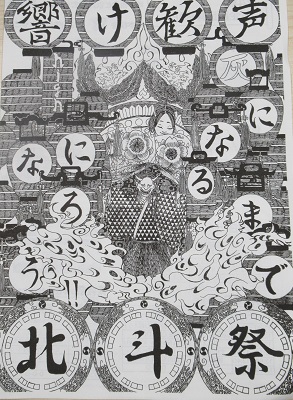 響け歓声
灰になるまで
になろう!!
北斗祭